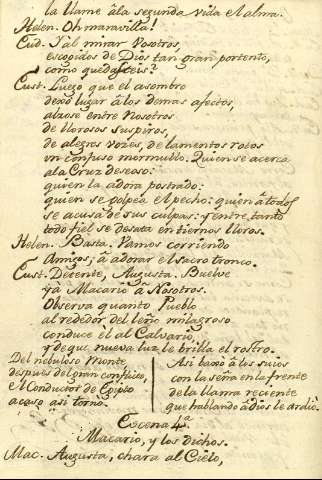 la llame à la segunda vida el alma.
Helen. Oh maravilla!
Eud. Y al mirar vosotros,
escogidos de Dios tan gran portento,
como quedasteis?
Eust. Luego que el asombro
dexò lugar à los demas afectos,
alzose entre Nosotros
de llorosos suspiros,
de alegres vozes, de lamentos rotos
vn confuso mormullo. Quien se acerca
a la Cruz deseoso:
quien la adora postrado:
quien se golpea el pecho: quien à todos
se acusa de sus culpas: y entre tanto
todo fiel se desata en tiernos lloros.
Helen. Basta. Vamos corriendo
Amigos; à adorar el sacro tronco.
Eust. Detente, Augusta. Buelve
yà Macario à Nosotros.
Observa quanto Pueblo
al rededor del leño milagroso
conduce èl al Calvario,
y de que nueva luz le brilla el rostro.
Del nebuloso Monte
despues del gran conflicto,
el Conductor de Egipto
acaso asi tornò.
Asi baxò à los suios
con la seña en la frente
de la llama reciente
que hablando à Dios le ardiò.
Escena 4.ª
Macario, y los dichos.
Mac. Augusta, chara al Cielo,